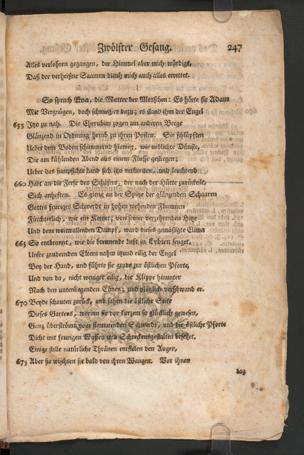 Zwölfter Gesang. 247
Alles verlohren gegangen, der Himmel aber mich würdigt,
Daß der verheißne Saamen durch mich auch alles errettet.
So sprach Eva, die Mutter der Menschen: Es hörte sie Adam
Mit Vergnügen, doch schwieg er dazu; es stand ihm der Engel
655 Itzo zu nah. Die Cherubim zogen am andern Berge
Glänzend in Ordnung herab zu ihren Posten. Sie schlüpften
Ueber dem Boden schimmernd hinweg, wie nebliche Dünste,
Die am kühlenden Abend aus einem Flusse gestiegen;
Ueber das sumpfichte Land sich itzo verbreiten, und
660 an die Ferse des Schäfers, der nach der Hütte zurückeilt,
Sich anheften. Es gieng an der Spitze der glänzenden Schaaren
Gottes feuriges Schwerdt in hohem wehenden Flammen
Fürchterlich, wie ein Komet; von seiner verzehrenden Hitze
Und dem umwallenden Dampf, ward dieses gemäßigte Clima
665 So entbrannt, wie die brennende Luft in Lybien senget.
Unsre zaudernden Eltern nahm itzund eilig der Engel
Bey der Hand, und führte sie grade zur östlichen Pforte,
Und von da, nicht weniger eilig, die Klippe hinunter
Nach den untenliegenden Ebnen; und plötzlich verschwand er.
670 Beyde schauten zurück, und sahen die östliche Seite
Dieses Gartens, worinn sie vor kurzem so glücklich gewesen,
Ganz überströmt von flammenden Schwerdt, und die östliche Pforte
Dicht mit feurigen Waffen und Schreckengestalten besetzet.
Einige stille natürliche Thränen entfielen den Augen,
675 Aber sie wischten sie bald von ihren Wangen. Vor ihnen